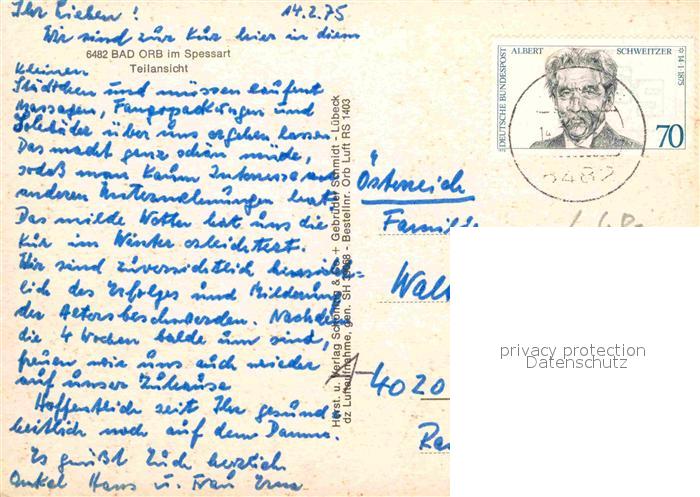 Ihr Lieben! 14.2.75
Wir sind zur Kur hier in diesem
6482 BAD ORB im Spessart
Teilansicht
kleinen
Städtchen und müssen laufend
Massagen, Fangopackungen und
Solebäder über uns ergehen lassen.
Das macht ganz schön müde,
sodaß man kaum Interesse an
anderen Unternehmungen hat.
Das milde Wetter hat uns die
Kur im Winter erleichtert.
Wir sind zuversichtlich hinsicht-
lich des Erfolges und Milderung
der Altersbeschwerden. Nachdem
die 4 Wochen balde um sind,
freuen wir uns auch wieder
auf unser Zuhause
Hoffentlich seit Ihr gesund-
heitlich noch auf dem Damm.
Es grüßt Euch herzlich
Onkel Hans u. Frau Erna
Horst. u. Verlag Schöning & Co + Gebrüder Schmidt - Lübeck
dz Luftaufnahme, gen. SH Bestellnr. Orb Luft RS 1403
DEUTSCHE BUNDESPOST
ALBERT SCHWEITZER
✲ 14·1·1875
70
Österreich
Familie
4020
privacy protection
Datenschutz